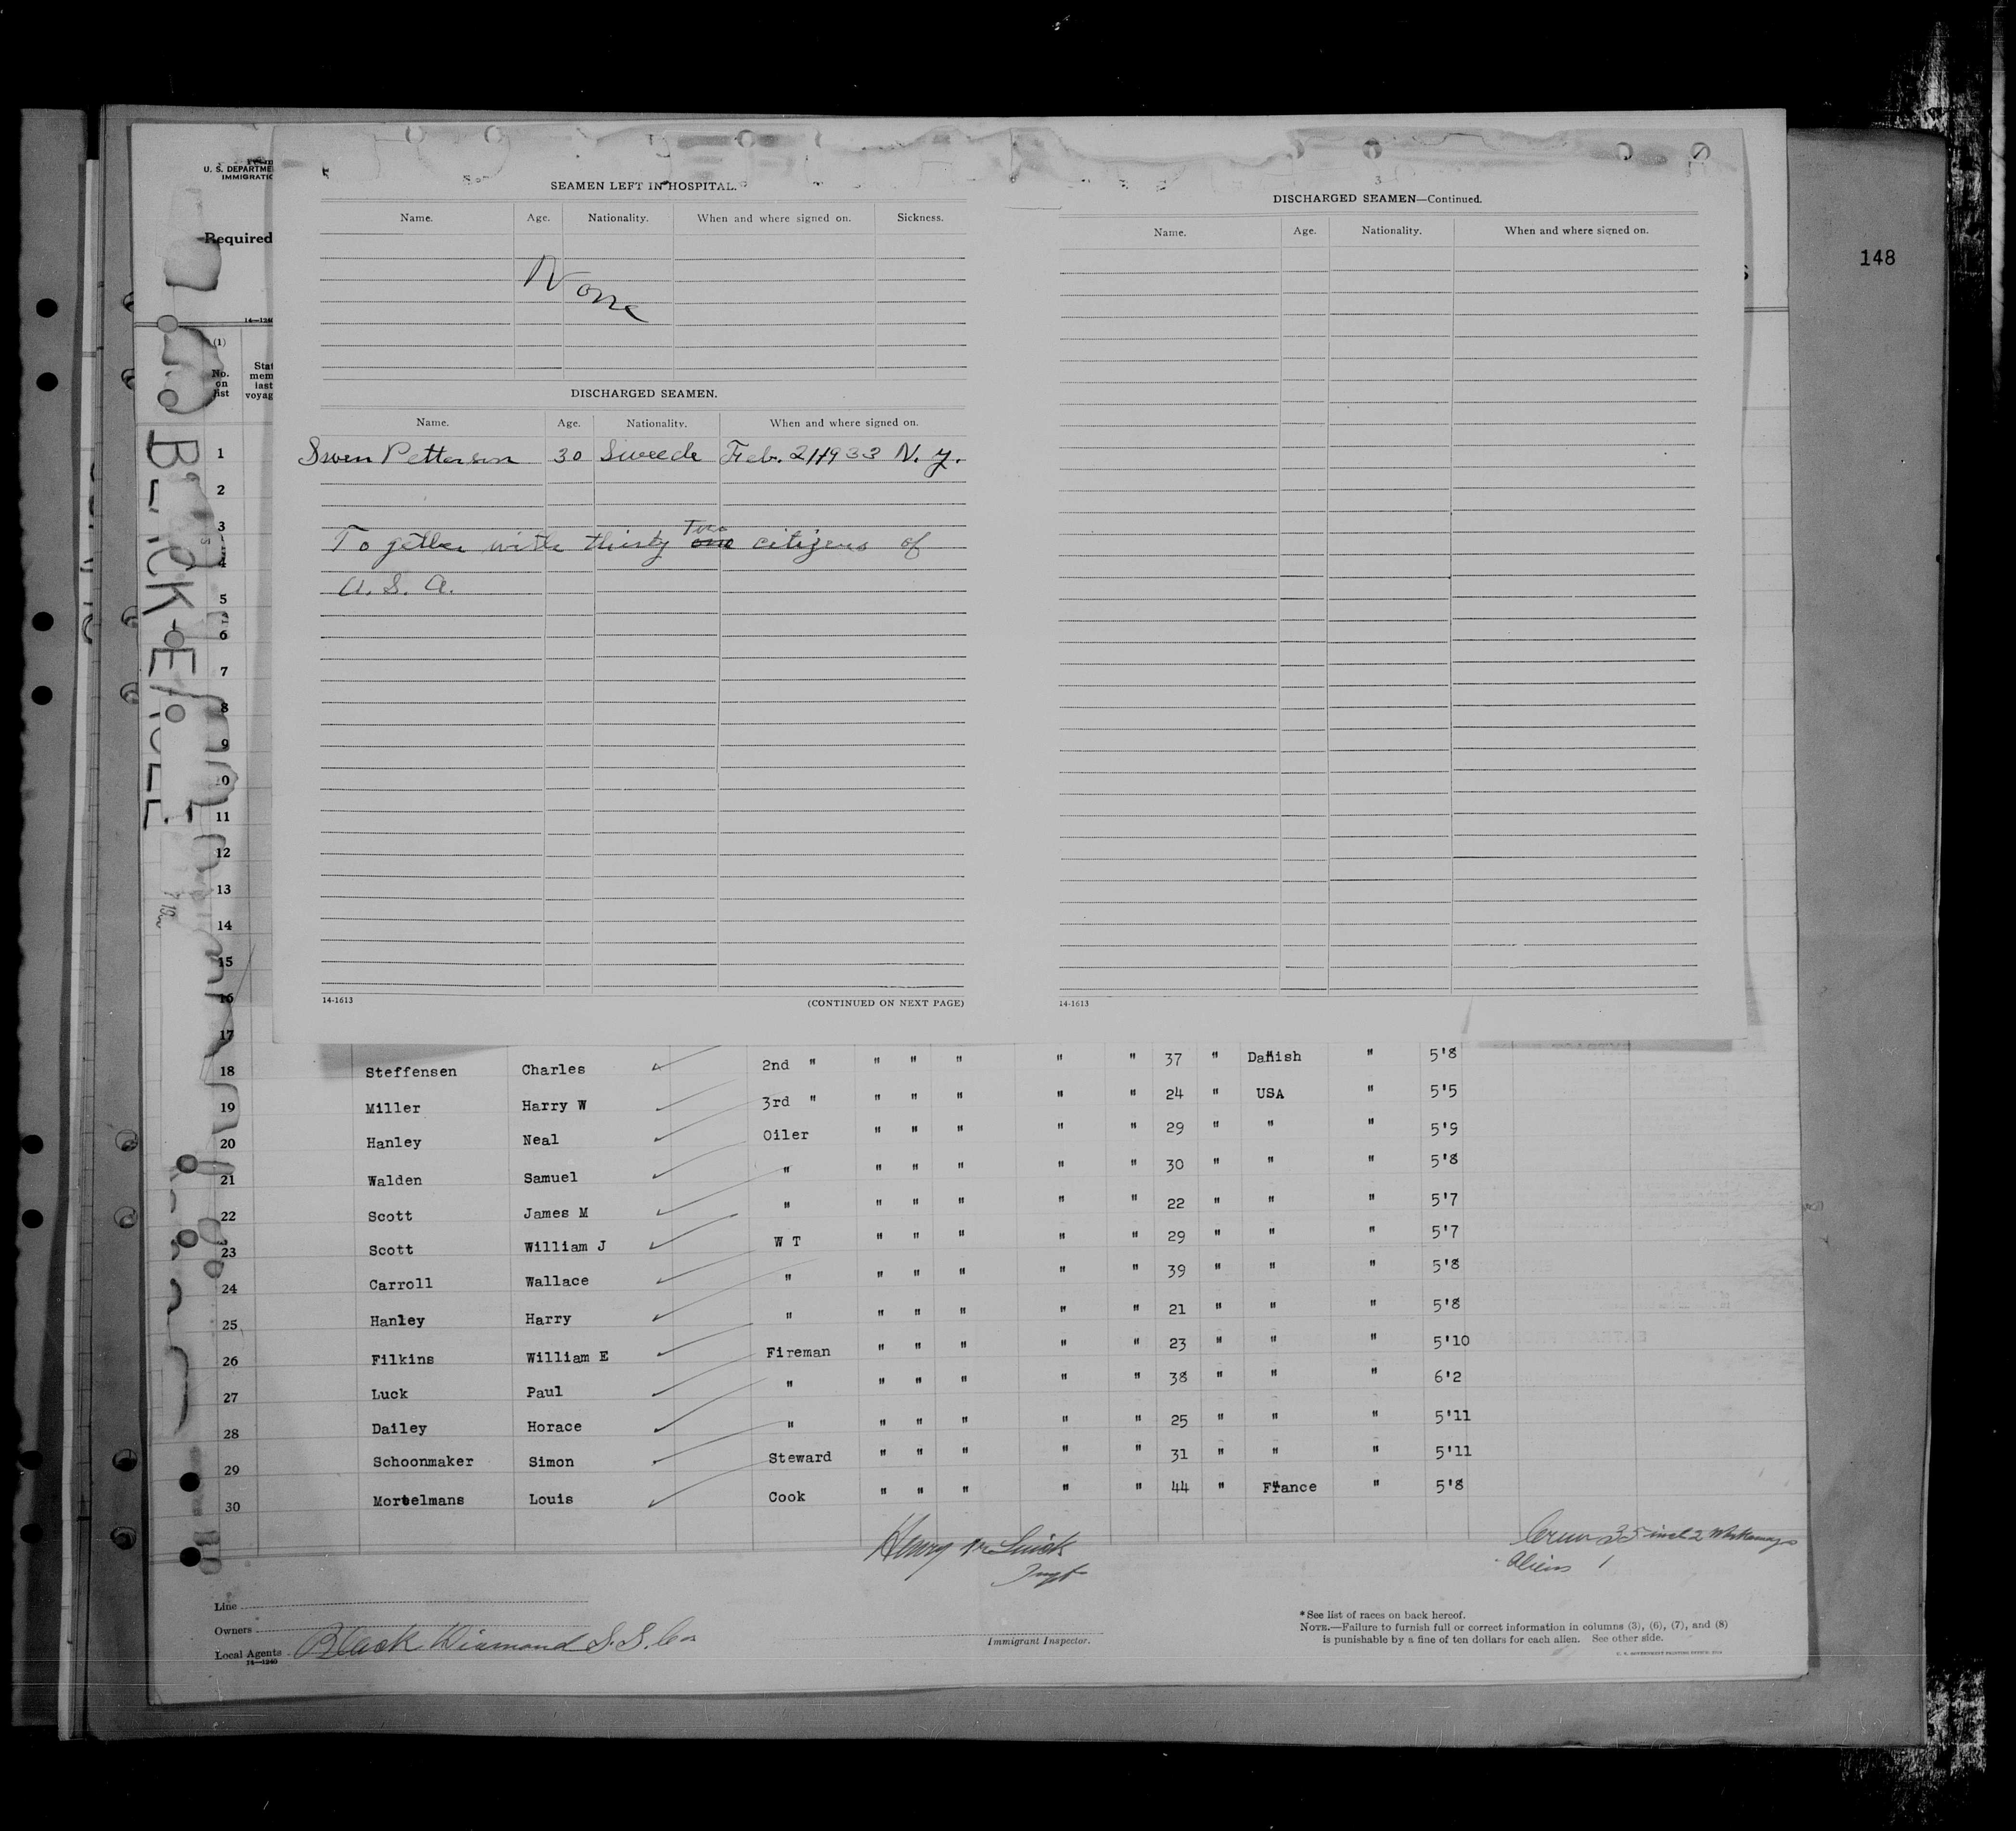 U. S. DEPARTME
IMMIGRATIO
Required
148
SEAMEN LEFT IN HOSPITAL.
Name. Age. Nationality. When and where signed on. Sickness.
None
DISCHARGED SEAMEN.
Name. Age. Nationality. When and where signed on.
Swen Petterson 30 Sweede Feb. 21/1933 N. y.
Together with thirty Two one citizens of
U. S. A.
14-1613 (CONTINUED ON NEXT PAGE)
DISCHARGED SEAMEN—Continued.
Name. Age. Nationality. When and where signed on.
14-1613
14—1240
(1)
No. on list
Stat
mem
last
voyag
1
2
3
4
5
6
7
8
9
10
11
12
13
14
15
16
17
18 Steffensen Charles 2nd " " " " " " 37 " Danish " 5'8
19 Miller Harry W 3rd " " " " " " 24 " USA " 5'5
20 Hanley Neal Oiler " " " " " 29 " " " 5'9
21 Walden Samuel " " " " " " 30 " " " 5'8
22 Scott James M " " " " " " 22 " " " 5'7
23 Scott William J W T " " " " " 29 " " " 5'7
24 Carroll Wallace " " " " " " 39 " " " 5'8
25 Hanley Harry " " " " " " 21 " " " 5'8
26 Filkins William E Fireman " " " " " 23 " " " 5'10
27 Luck Paul " " " " " " 38 " " " 6'2
28 Dailey Horace " " " " " " 25 " " " 5'11
29 Schoonmaker Simon Steward " " " " " 31 " " " 5'11
30 Mortelmans Louis Cook " " " " " 44 " France " 5'8
Henry
Crew 35 incl 2 Workaways
Aliens 1
Line
Owners
Local Agents Black Diamond S. S. Co
14—1240
Immigrant Inspector.
*See list of races on back hereof.
NOTE.—Failure to furnish full or correct information in columns (3), (6), (7), and (8)
is punishable by a fine of ten dollars for each alien. See other side.